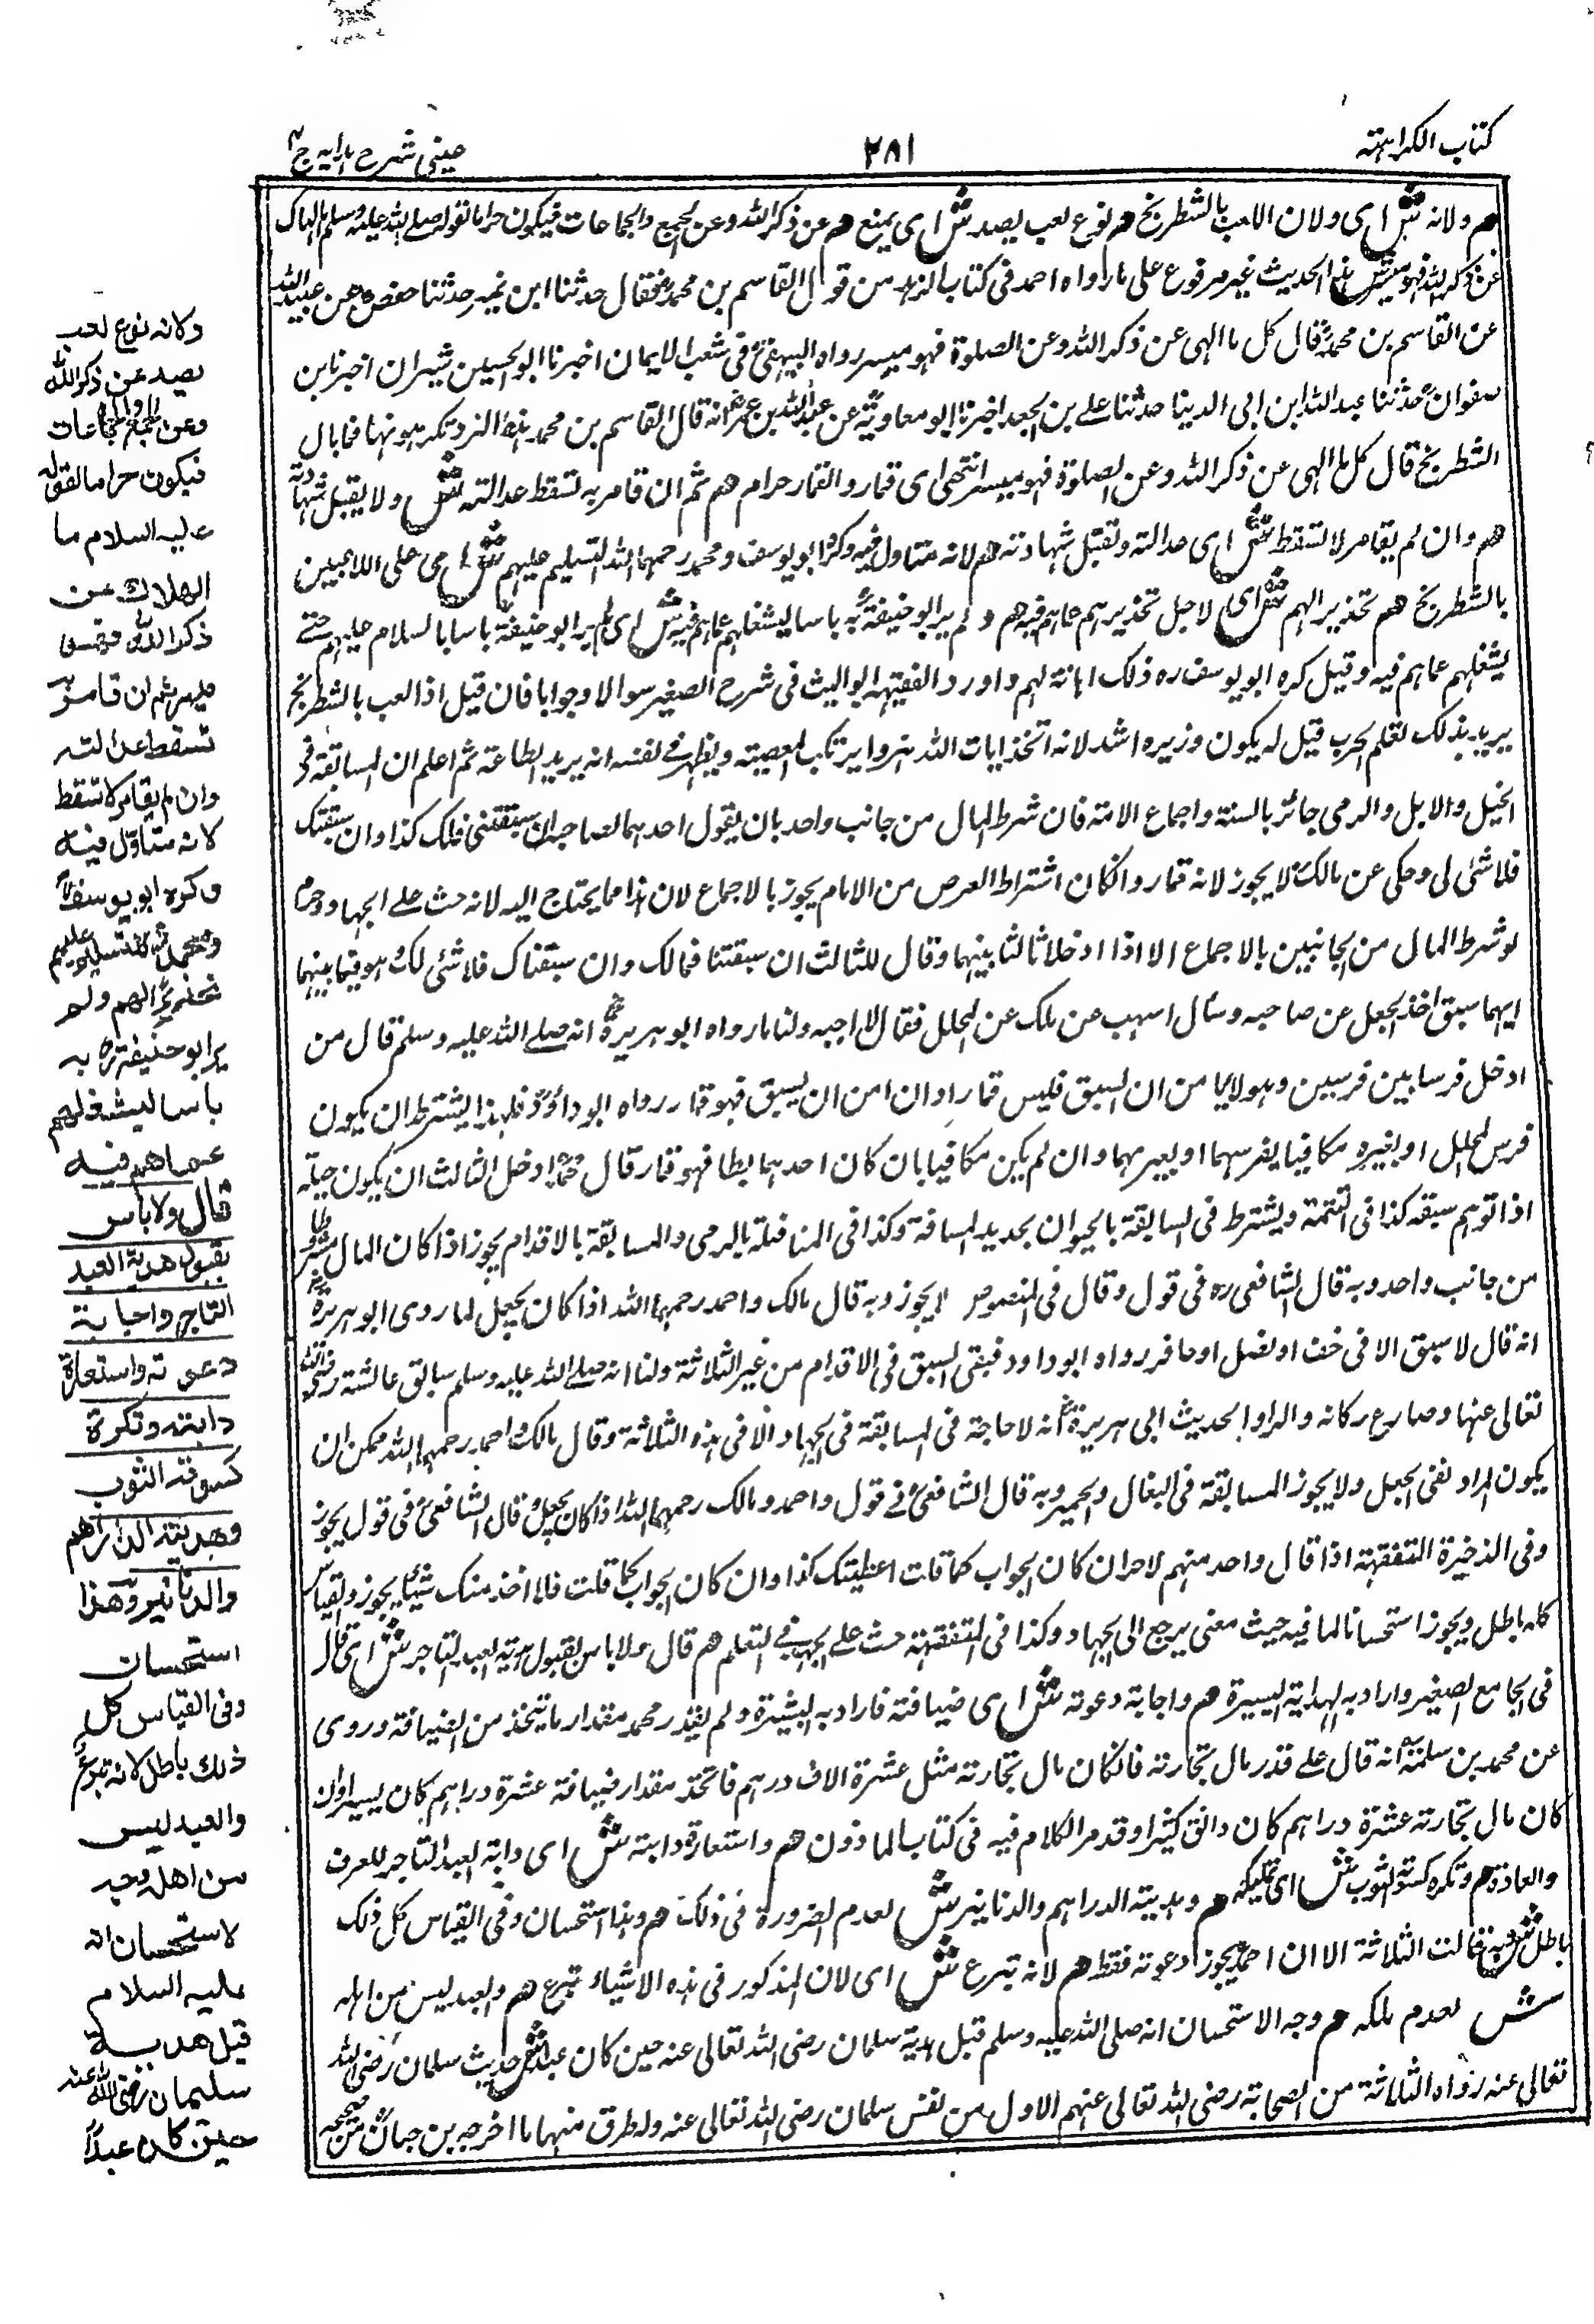 كتاب الكراهية
٢٨١
عينى شرح هدايه ج ٤
هم ولانه ش اى ولان اللعب بالشطرنج هم نوع لعب يصد ش اى يمنع هم عن ذكر الله وعن الجمع والجماعات فيكون حراما لقوله صلى الله عليه وسلم ما الهاك
عن ذكر الله فهو ميسر ش هذا الحديث غير مرفوع على ما رواه احمد فى كتاب الزهد من قول القاسم بن محمد فقال حدثنا ابن نمير حدثنا حفص عن عبيد الله
عن القاسم بن محمد قال كل ما الهى عن ذكر الله وعن الصلوة فهو ميسر رواه البيهقى فى شعب الايمان اخبرنا ابو الحسين بن بشران اخبرنا بن
صفوان حدثنا عبد الله ابن ابى الدنيا حدثنا على بن الجعد اخبرنا ابو معاوية عن عبد الله بن عمر انه قال القاسم بن محمد هذه النرد تكرهونها فما بال
الشطرنج قال كل ما الهى عن ذكر الله وعن الصلوة فهو ميسر انتهى اى قمار والقمار حرام هم ثم ان قامر به تسقط عدالته ش ولا يقبل شهادته
هم وان لم يقامر لا تسقط ش اى عدالته وتقبل شهادته هم لانه متاول فيه وكره ابو يوسف ومحمد رحمهما الله التسليم عليهم ش اى على اللاعبين
بالشطرنج هم تحذيرا لهم ش اى لاجل تحذيرهم عما هم فيه هم ولم ير ابو حنيفة به باسا ليشغلهم عما هم فيه ش اى لم ير ابو حنيفة باسا بالسلام عليهم حتى
يشغلهم عما هم فيه وقيل كره ابو يوسف ره ذلك اهانة لهم واورد الفقيه ابو الليث فى شرح الصغير سوالا وجوابا فان قيل اذا لعب بالشطرنج
يريد بذلك تعلم الحرب قيل له يكون وزيره اشد لانه اتخذ ايات الله هزوا يرتكب المعصية ويظهر فى نفسه انه يريد الطاعة ثم اعلم ان المسابقة فى
الخيل والابل والرمى جائز بالسنة واجماع الامة فان شرط المال من جانب واحد بان يقول احدهما لصاحبه ان سبقتنى فلك كذا وان سبقتك
فلا شئ لى وحكى عن مالك لا يجوز لانه قمار وانكان اشتراط العوض من الامام يجوز بالاجماع لان هذا مما يحتاج اليه لانه حث على الجهاد وحرم
لو شرط المال من الجانبين بالاجماع الا اذا ادخلا ثالثا بينهما وقال للثالث ان سبقتنا فمالك وان سبقناك فلا شئ لك هو فيما بينهما
ايهما سبق اخذ الجعل عن صاحبه وسال اسهب عن ملك عن المحلل فقال لا احبه ولنا ما رواه ابو هريرة انه صلى الله عليه وسلم قال من
ادخل فرسا بين فرسين وهو لا يامن ان يسبق فليس قمارا وان امن ان يسبق فهو قمار رواه ابو داود فلهذا يشترط ان يكون
فرس المحلل او بغيره مكافيا بفرسهما او بعيرهما وان لم يكن مكافيا بان كان احدهما بطا فهو قمار قال محمد ادخل الثالث ان يكون حيلة
اذا توهم سبقه كذا فى التتمة ويشترط فى المسابقة بالحيوان تحديد المسافة وكذا فى المناضلة بالرمى والمسابقة بالاقدام يجوز اذا كان المال مشروطا
من جانب واحد وبه قال الشافعى ره فى قول وقال فى المنصوص لا يجوز وبه قال مالك واحمد رحمهما الله اذا كان بجعل لما روى ابو هريرة
انه قال لا سبق الا فى خف او نصل او حافر رواه ابو داود فبقى السبق فى الاقدام من غير الثلاثة ولنا انه صلى الله عليه وسلم سابق عائشة رضى الله
تعالى عنها وصارع ركانه والمراد بحديث ابى هريرة انه لا حاجة فى المسابقة فى الجهاد الا فى هذه الثلاثة وقال مالك واحمد رحمهما الله ممكن ان
يكون المراد نفى الجعل ولا يجوز المسابقة فى البغال والحمير وبه قال الشافعى فى قول واحمد ومالك رحمهم الله اذا كان بجعل وقال الشافعى فى قول يجوز
وفى الذخيرة المتفقهة اذا قال واحد منهم لاخر ان كان الجواب كما قلت اعطيتك كذا وان كان الجواب كما قلت فلا اخذ منك شيئا يجوز والقياس
كله باطل ويجوز استحسانا لما فيه حيث معنى يرجع الى الجهاد وكذا فى المتفقهة حث على الجهد فى التعلم هم قال ولا باس بقبول هدية العبد التاجر ش اى قال
فى الجامع الصغير واراد به الهداية اليسيرة هم واجابة دعوته ش اى ضيافته فاراد به اليسيرة ولم يقدر محمد مقدار ما يتخذ من الضيافة وروى
عن محمد بن سلمة انه قال على قدر مال تجارته فانكان مال تجارته مثل عشرة الاف درهم فاتخذ مقدار ضيافة عشرة دراهم كان يسيرا وان
كان مال تجارته عشرة دراهم كان دانق كثيرا وقد مر الكلام فيه فى كتاب الماذون هم واستعارة دابته ش اى دابة العبد التاجر للعرف
والعادة هم وتكره كسوته الثوب ش اى تمليكه هم وهديته الدراهم والدنانير ش لعدم الضرورة فى ذلك هم وهذا استحسان وفى القياس كل ذلك
باطل ش وبه قالت الثلاثة الا ان احمد يجوز دعوته فقط هم لانه تبرع ش اى لان المذكور فى هذه الاشياء تبرع هم والعبد ليس من اهله
ش لعدم ملكه هم وجه الاستحسان انه صلى الله عليه وسلم قبل هدية سلمان رضى الله تعالى عنه حين كان عبدا ش حديث سلمان رضى الله
تعالى عنه رواه الثلاثة من الصحابة رضى الله تعالى عنهم الاول من نفس سلمان رضى الله تعالى عنه وله طرق منها ما اخرجه بن حبان من صحيحه
ولانه نوع لعب
يصد عن ذكر الله
وعن الجمع والجماعات
فيكون حراما لقوله
عليه السلام ما
الهاك عن
ذكر الله فهو
ميسر ثم ان قامر به
تسقط عدالته
وان لم يقامر لا تسقط
لانه متاول فيه
وكره ابو يوسف
ومحمد التسليم عليهم
تحذيرا لهم ولم
ير ابو حنيفة به
باسا ليشغلهم
عما هم فيه
قال ولا باس
بقبول هدية العبد
التاجر واجابة
دعوته واستعارة
دابته وتكره
كسوته الثوب
وهديته الدراهم
والدنانير وهذا
استحسان
وفى القياس كل
ذلك باطل لانه تبرع
والعبد ليس
من اهله وجه
الاستحسان انه
عليه السلام
قبل هدية
سليمان رضى الله عنه
حين كان عبدا